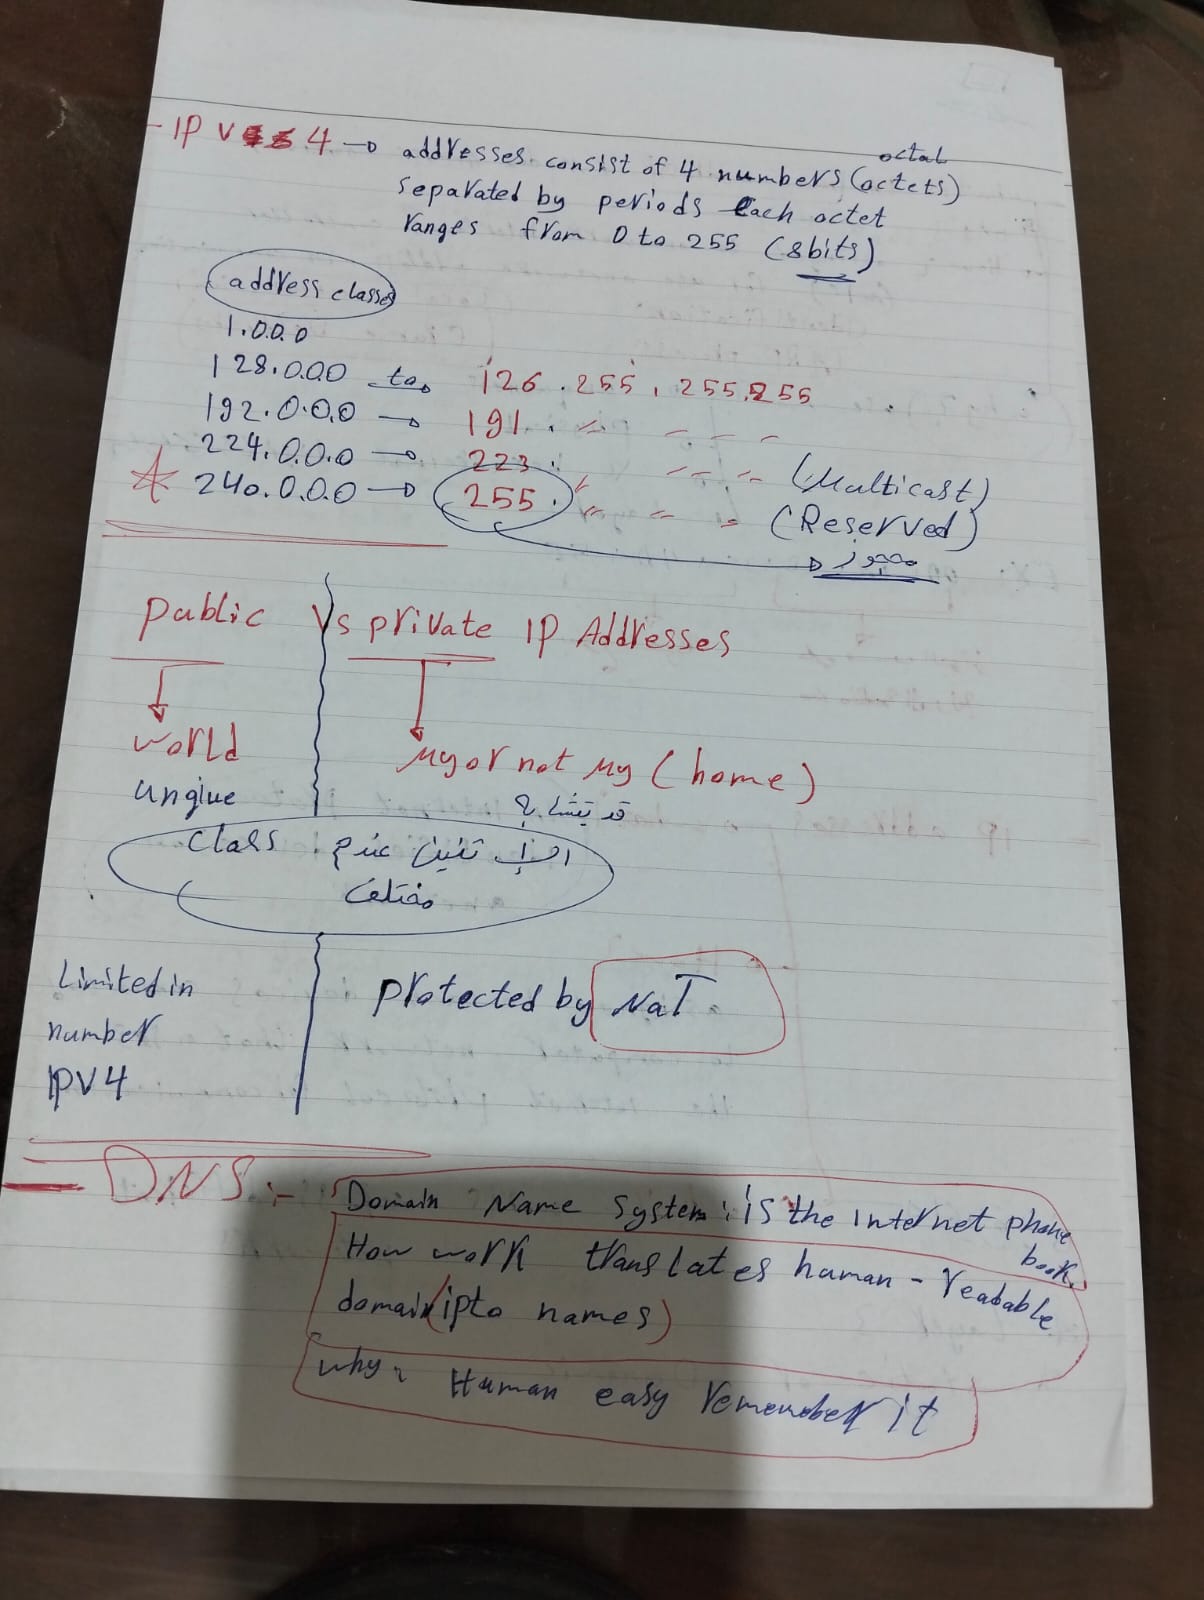 - IP V 4 → addresses consist of 4 numbers (octets)
octal
separated by periods Each octet
ranges from 0 to 255 (8bits)
address classes
1.0.0.0
128.0.0.0 to 126.255.255.255
192.0.0.0 → 191. " " "
224.0.0.0 → 223. " " " (Multicast)
240.0.0.0 → 255. " " " (Reserved)
محجوز
public Vs private IP Addresses
world
my or not my (home)
unqiue
قد يتشابه
class الـ تنين عندهم
مختلف
Limited in
number
IPV4
protected by NaT
DNS :-
Domain Name System: is the internet phone
book.
How work translates human - readable
domain (ip to names)
why? Human easy remember it